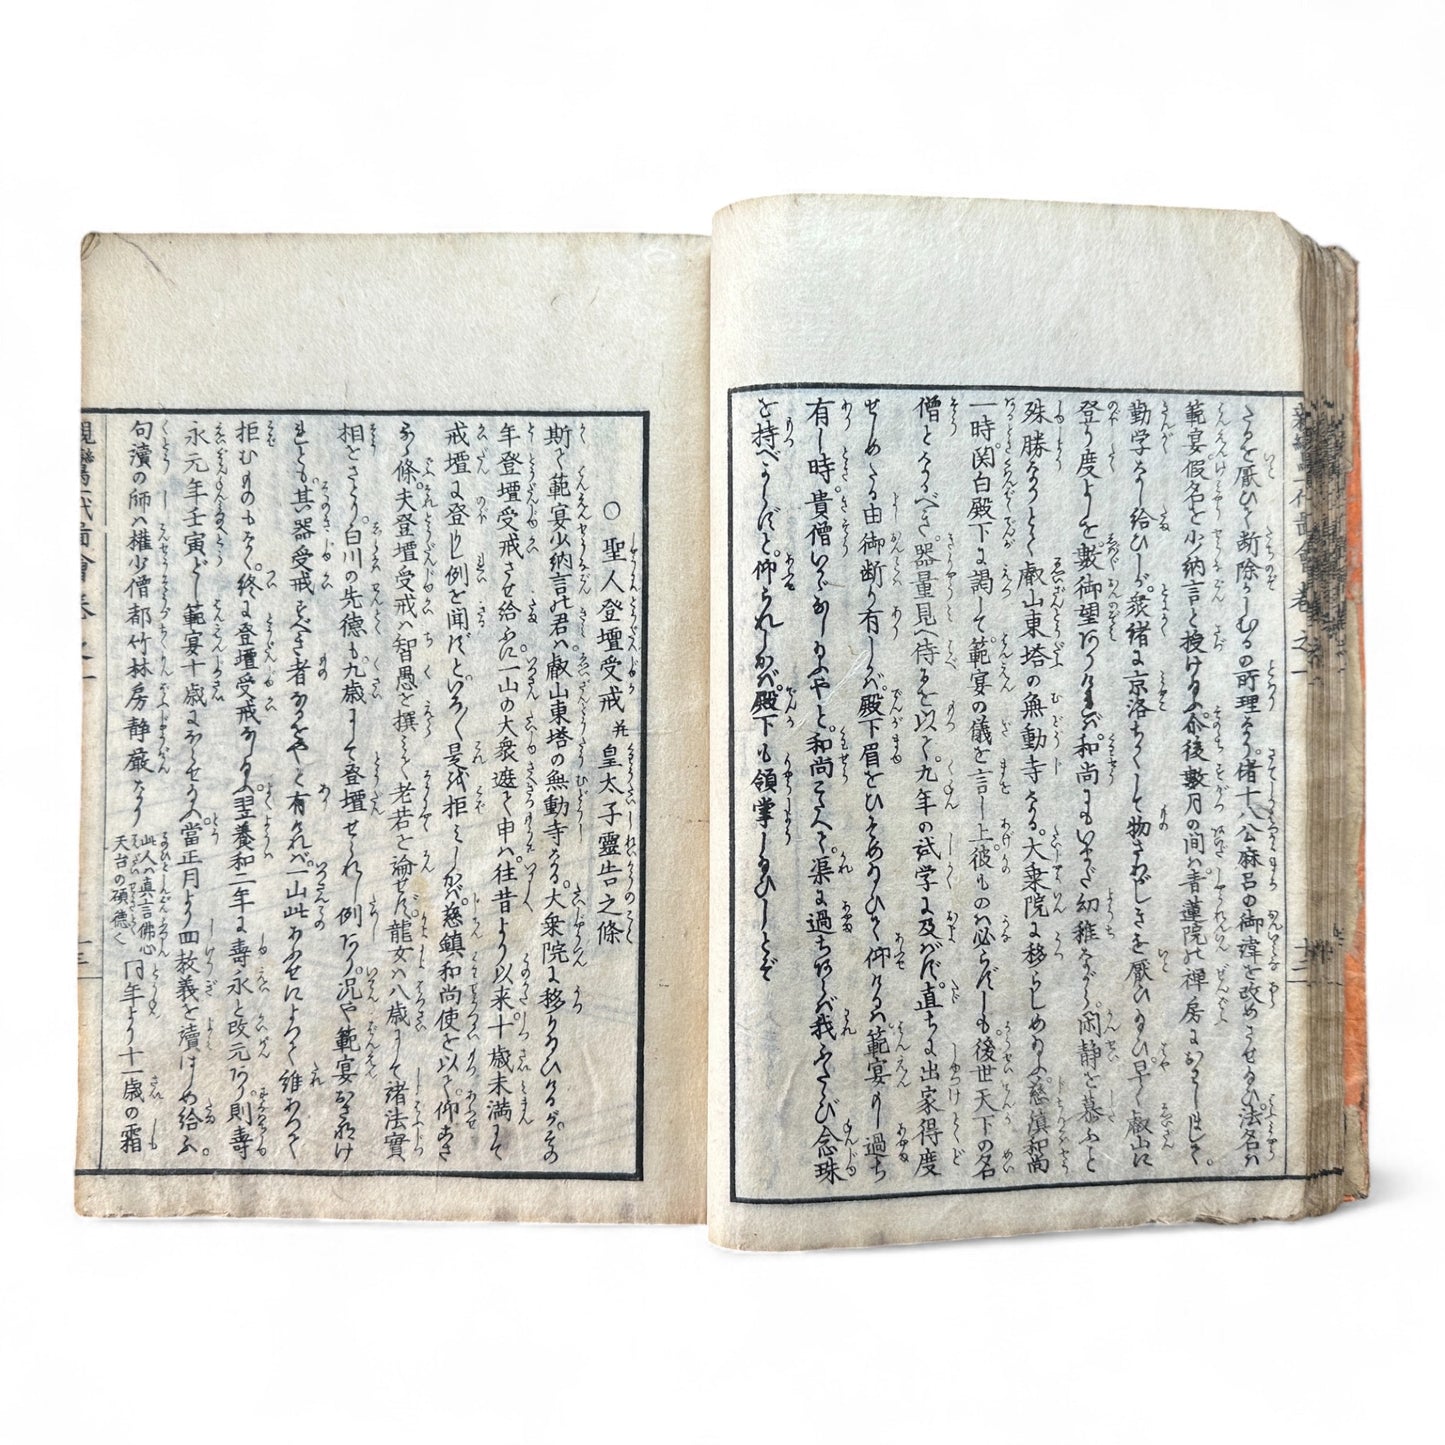 さるを厭ひて断除かしむるの所理なり。偖十八公麻呂の御諱を改めさせ給ひ法名は
範宴假名を少納言と授け給ふ。今後數月の間は青蓮院の禅房におはしまして。
勤学なし給ひしが衆緒に京洛ちかくして物さわがしきを厭ひ給ひ早く叡山に
登り度よしを數御望ありければ和尚にもいまだ幼稚ながら閑静を慕ふこと
殊勝なりとて叡山東塔の無動寺なる。大乗院に移らしめ給ふ。慈鎮和尚
一時関白殿下に謁して範宴の儀を言し上彼ものは必らずしも後世天下の名
僧となるべき。器量見へ侍るを以て。九年の試学に及ばず。直ちに出家得度
せしめたる由御断り有しが殿下眉をひそめ給ひて仰けるは範宴のし過ち
有し時。貴僧いかがし給ふやと。和尚こたへて渠に過ちあらば我ふたたび念珠
を持べからずと。仰られしかば殿下も領掌し給ひしとぞ
○聖人登壇受戒并皇太子靈告之條
斯て範宴少納言の君は叡山東塔の無動寺なる。大衆院に移り給ひけるが。その
年登壇受戒させ給ふに一山の大衆遮て申は。往昔より以来。十歳未満にて
戒壇に登りし例を聞ずといふて是を拒みしかば。慈鎮和尚使を以て。仰こさ
るる條。夫登壇受戒は智愚を撰みて老若を論ぜず。龍女は八歳にして諸法實
相をさとり。白川の先徳も九歳にして登壇せられし例あり。況や範宴おさなけ
れども。其器受戒すべき者なるをやと有ければ。一山此おふせによつて維あつて
拒むものもなく。終に登壇受戒なりしぬ。翌養和二年に壽永と改元あり。則壽
永元年壬寅どし範宴十歳にならせ給ふ。當正月より四教義を讀はじめ給ふ。
句讀の師は権少僧都竹林房静嚴なり 此人は真言佛心天台の碩徳也 同年より十一歳の霜
親鸞一代圖會巻之一